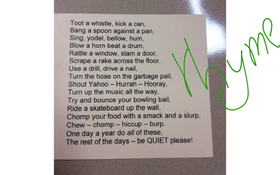 Toot a whistle, kick a can,
Bang a spoon against a pan.
Sing, yodel, bellow, hum,
Blow a horn beat a drum,
Rattle a window, slam a door,
Scrape a rake across the floor,
Use a drill, drive a nail,
Turn the hose on the garbage pail,
Shout Yahoo – Hurrah – Hooray,
Turn up the music all the way,
Try and bounce your bowling ball,
Ride a skateboard up the wall,
Chomp your food with a smack and a slurp,
Chew – chomp – hiccup – burp.
One day a year do all of these,
The rest of the days – be QUIET please!
rhyme